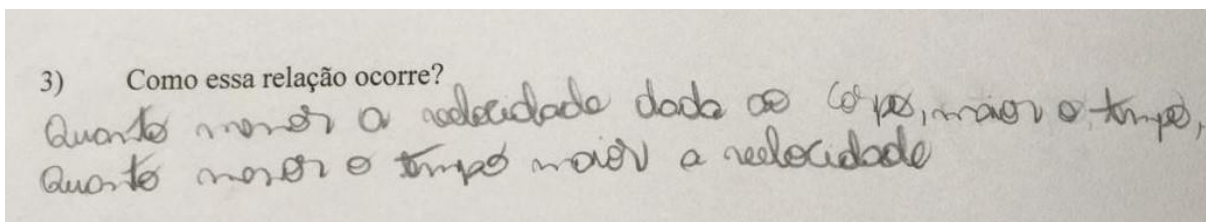 3) Como essa relação ocorre?
Quanto menor a velocidade dada ao corpo, maior o tempo,
Quanto menor o tempo maior a velocidade